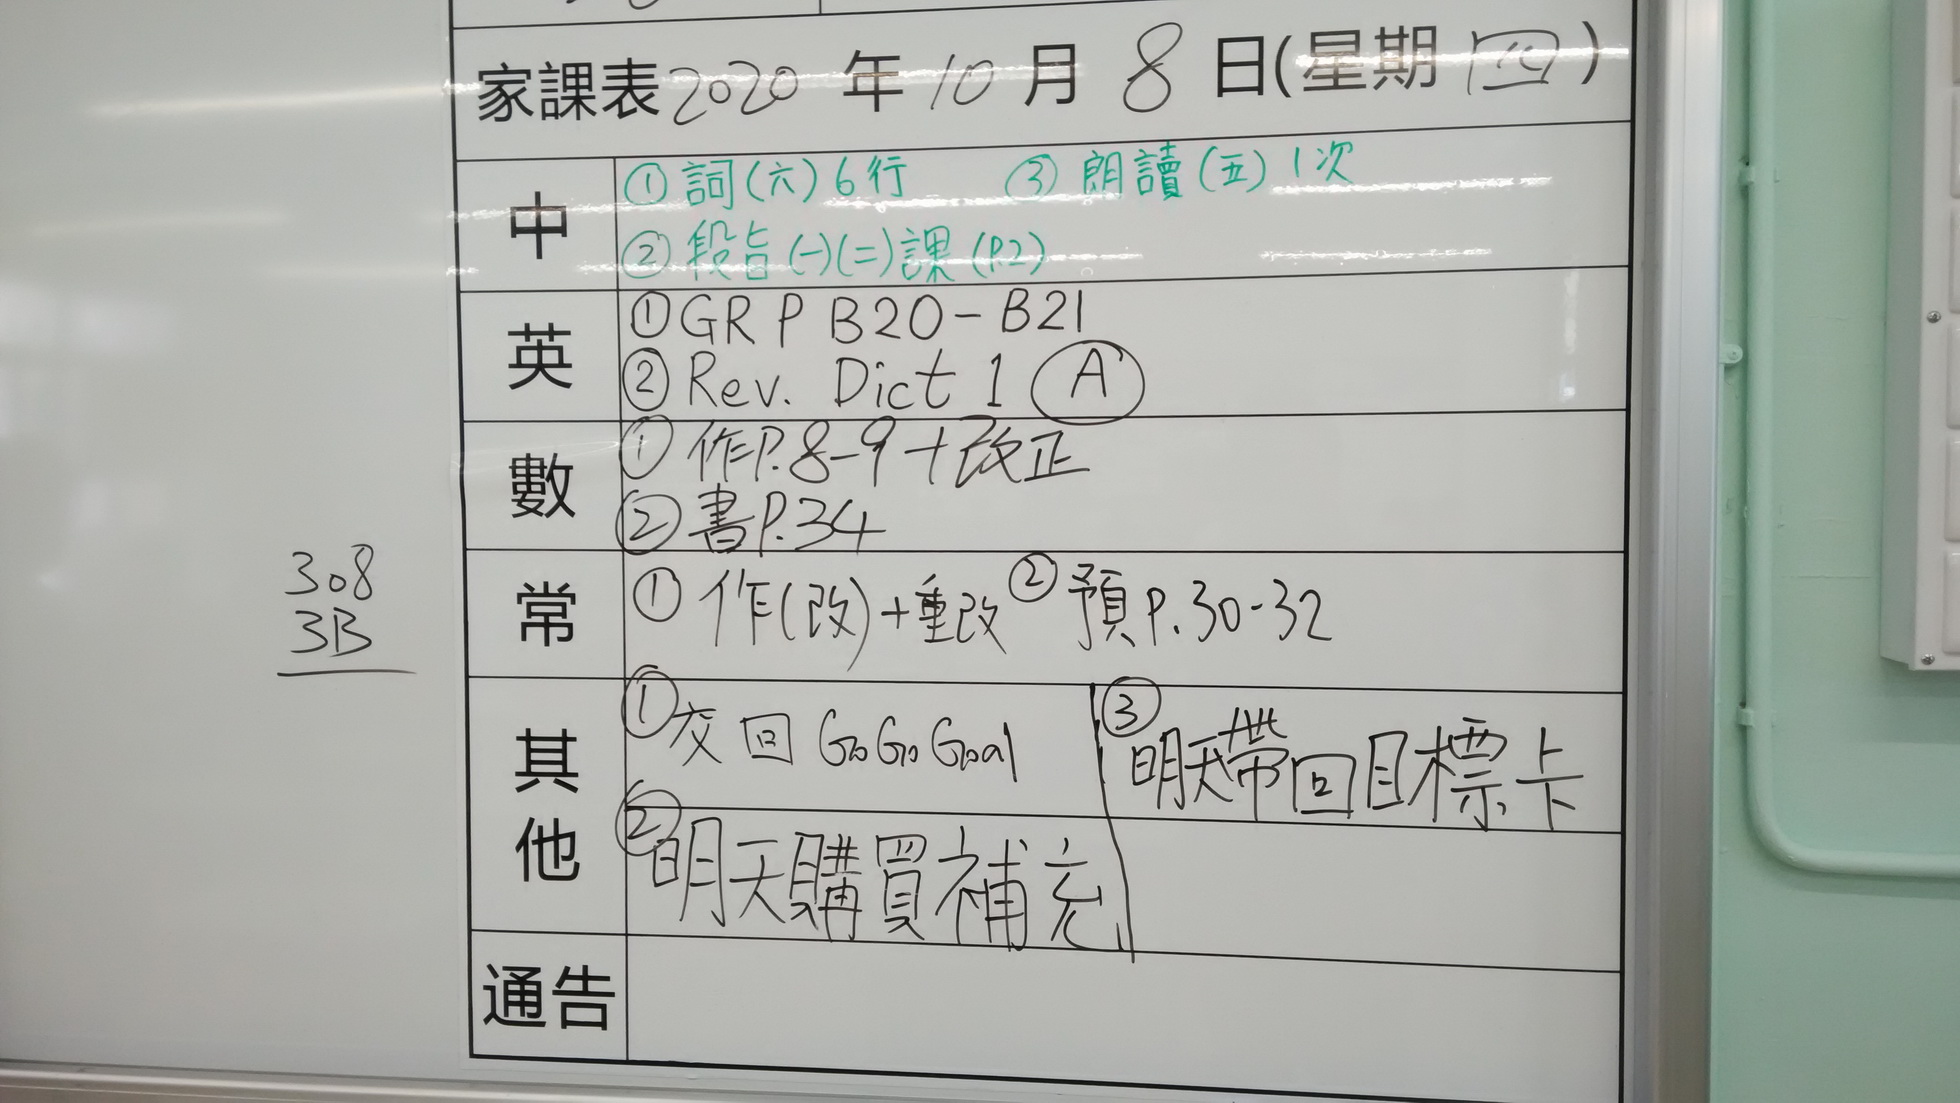 家課表 2020 年 10 月 8 日(星期 四)
中
① 詞(六)6行 ③ 朗讀(五)1次
② 段旨(一)(二)課(P.2)
英
① GR P B20-B21
② Rev. Dict 1 Ⓐ
數
① 作P.8-9+改正
② 書P.34
常
① 作(改)+重改 ② 預P.30-32
308
3B
其他
① 交回 GoGoGoal
② 明天購買補充
③ 明天帶回目標卡
通告